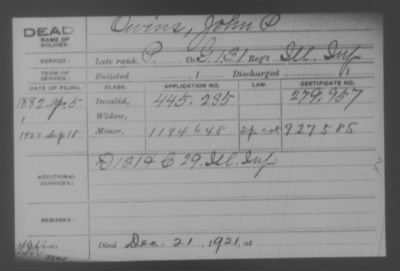 DEAD Owins, John P.
NAME OF SOLDIER:
SERVICE: Late rank, P. Co. G. 131 Reg't Ill. Inf
TERM OF SERVICE: Enlisted , 1 Discharged , 1
DATE OF FILING. CLASS. APPLICATION NO. LAW. CERTIFICATE NO.
1882 Ap. 5 Invalid, 445,235 279,957
1 Widow,
Sep 18 Minor, 1194648 927585
ADDITIONAL SERVICES: C 29. Ill. Inf
REMARKS:
Died Dec. 21, 1921, at